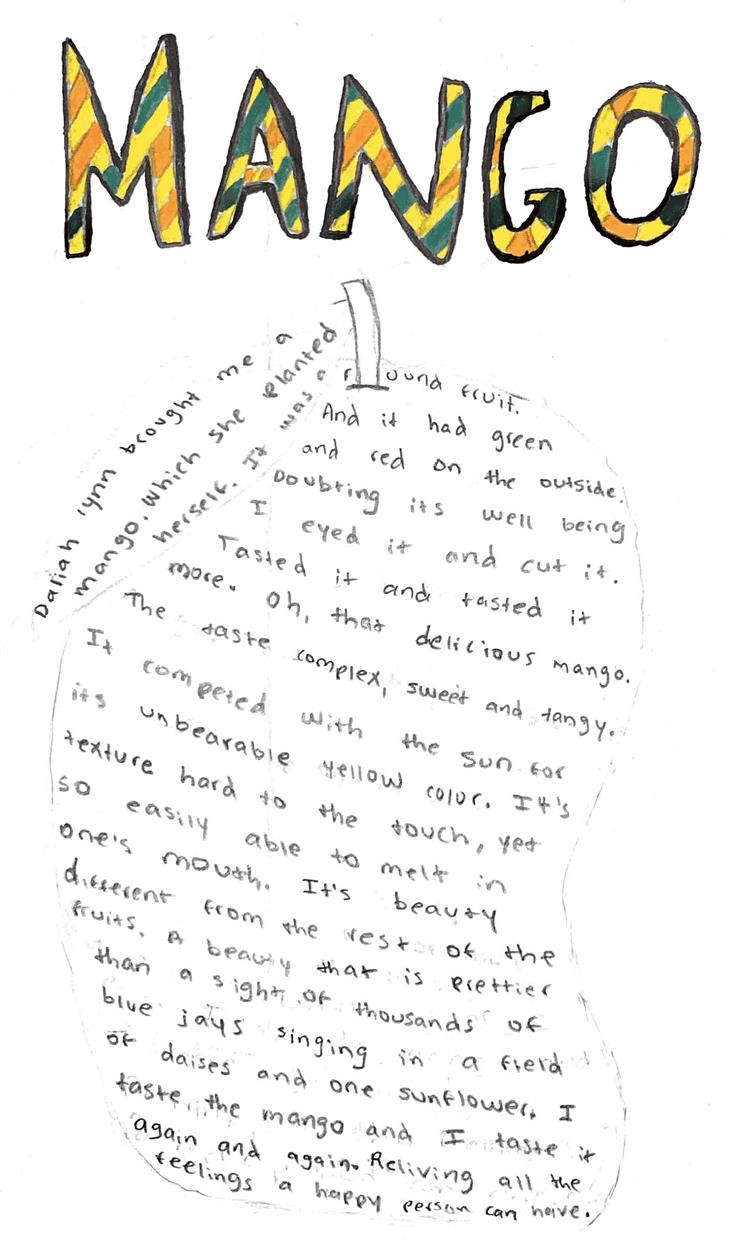 MANGO
Daliah lynn brought me a
mango. Which she planted
herself. It was a
round fruit.
And it had green
and red on the outside.
Doubting its well being
I eyed it and cut it.
Tasted it and tasted it
more. Oh, that delicious mango.
The taste complex, sweet and tangy.
It competed with the sun for
its unbearable yellow color. It's
texture hard to the touch, yet
so easily able to melt in
one's mouth. It's beauty
different from the rest of the
fruits. A beauty that is prettier
than a sight of thousands of
blue jays singing in a field
of daises and one sunflower. I
taste the mango and I taste it
again and again. Reliving all the
feelings a happy person can have.